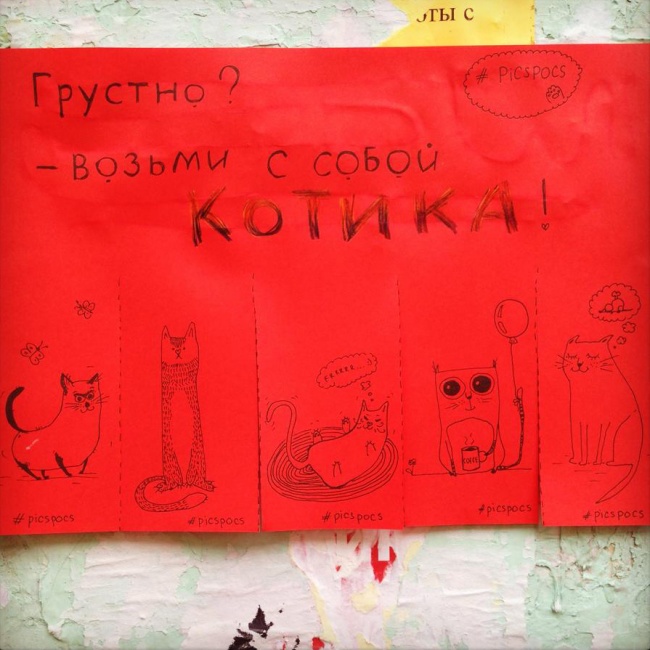 оты с
Грустно?
# picspocs
– возьми с собой
КОТИКА!
#picspocs
#picspocs
#picspocs
#picspocs
#picspocs